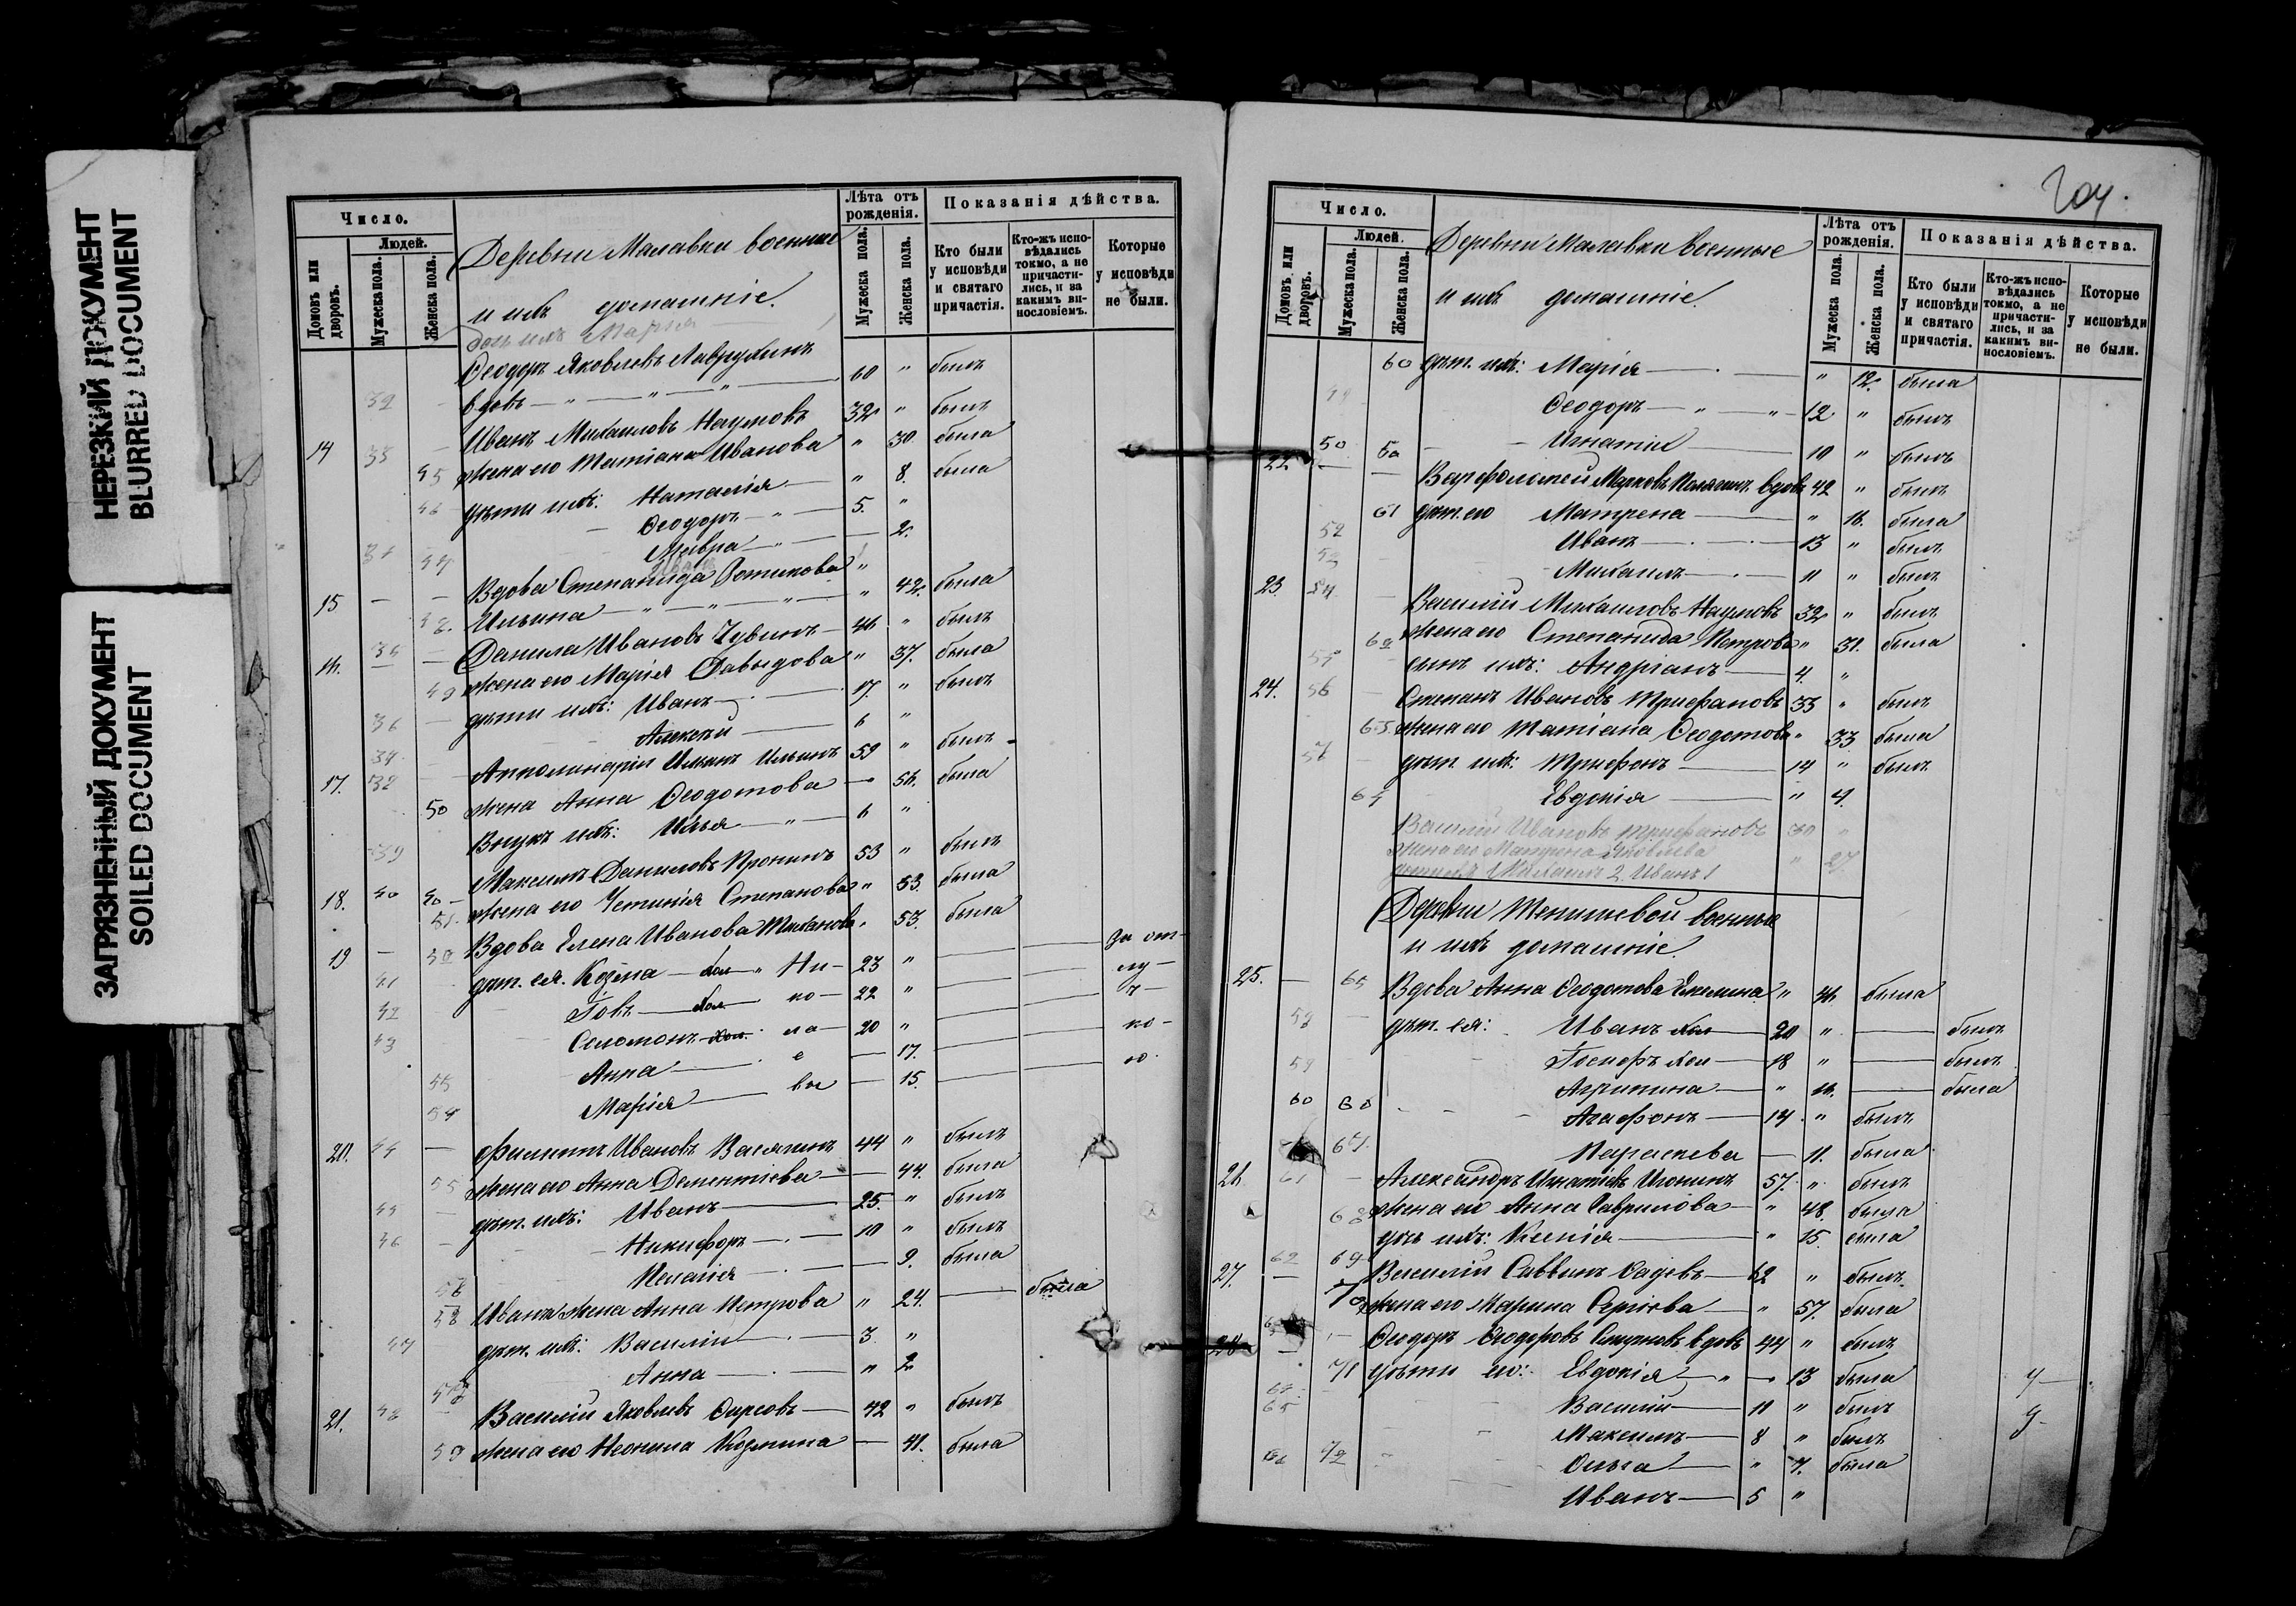 НЕРЕЗКИЙ ДОКУМЕНТ
BLURRED DOCUMENT
ЗАГРЯЗНЕННЫЙ ДОКУМЕНТ
SOILED DOCUMENT
Число.
Людей.
Домовъ или дворовъ.
Мужеска пола.
Женска пола.
Деревни Малавки военные
и ихъ домашніе.
Лѣта отъ рожденія.
Мужеска пола.
Женска пола.
Показанія дѣйства.
Кто были у исповѣди и святаго причастія.
Кто-жъ исповѣдались токмо, а не причастились, и за какимъ винословіемъ.
Которые у исповѣди не были.
дочь ихъ Марія
Ѳеодоръ Яковлевъ Лаврухинъ
32 вдовъ 60 " былъ
14 33 Иванъ Михаиловъ Наумовъ 32 " былъ
45 жена его Татіана Иванова " 30. была
46 дѣти ихъ: Наталія " 8. была
Ѳеодоръ 5. "
34 47 Мавра 2.
15 Вдова Степанида "
48. Ильина " 42. была
16. 35 Данила Ивановъ Чувинъ 46 " былъ
49 жена его Марія Давыдова " 37. была
36 дѣти ихъ: Иванъ 17 " былъ
37 Алексѣй 6 "
17. 38 Апполинарій Ильинъ 59 " былъ
50 жена Анна Ѳеодотова 56. была
39 Внукъ ихъ: Илья 6 "
18. 40 Максимъ Даниловъ Пронинъ 53 " былъ
51. жена его Устинія Степанова " 53. была
19 52 Вдова Елена Иванова " 53. была
41 дѣт. ея. Козма хол " Ни- 23 " За от-
42 Іовъ хол ко- 22 " лу-
43 Соломонъ хол. ла- 20 " ч-
53 Анна е 17. ко-
54 Марія вы 15. ю.
20. 44 Филиппъ Ивановъ 44 " былъ
55 жена его Анна Дементіева 44. была
45 дѣт. ихъ: Иванъ 25. " былъ
46 Никифоръ 10 " былъ
56 Пелагія 9. была
58 Ивана жена Анна Петрова " 24. была
47 дѣт. ихъ: Василій 3. "
Анна " 2
21. 48 Василій Яковлевъ Фирсовъ 42 " былъ
59 жена его Неонила Козмина 41. была
204.
Число.
Людей.
Домовъ или дворовъ.
Мужеска пола.
Женска пола.
Деревни Малавки военные
и ихъ домашніе.
Лѣта отъ рожденія.
Мужеска пола.
Женска пола.
Показанія дѣйства.
Кто были у исповѣди и святаго причастія.
Кто-жъ исповѣдались токмо, а не причастились, и за какимъ винословіемъ.
Которые у исповѣди не были.
60 дѣт. ихъ: Марія " 12. была
49 Ѳеодоръ 12 " былъ
50 Игнатій 10 " былъ
22 Варфоломей Марковъ вдовъ 42 " былъ
61 дѣт. его Матрена " 16. была
52 Иванъ 13 " былъ
53 Михаилъ 11 " былъ
23. 54 Василій Михаиловъ Наумовъ 32 " былъ
62 жена его Степанида Петрова " 31. была
55 сынъ ихъ: Андріанъ 4. "
24. 56 Степанъ Ивановъ Трифановъ 33 " былъ
63. жена его Татіана Ѳеодотова " 33. была
57 дѣт. ихъ: Трифонъ 14 " былъ
64 Евдокія " 4.
Василій Ивановъ Трифановъ 30 "
жена его Матрена Яковлева " 27
дѣти ихъ Михаилъ 2. Иванъ 1
Деревни Тенишевой военные
и ихъ домашніе.
25. 65 Вдова Анна Ѳеодотова " 46 была
58 дѣт. ея: Иванъ хол 20 " былъ
59 Іосифъ хол 18 " былъ
Агрипина " 16. была
60 Агафонъ 14 " былъ
67. Параскева 11. была
26. 61 Александръ Игнатіевъ 57. " былъ
68 жена его Анна Гаврилова " 48. была
69 дочь ихъ: Ксенія " 15. была
27. 62 Василій Саввинъ 62 " былъ
70 жена его Марина Сергіева " 57. была
28. Ѳеодоръ Ѳеодоровъ вдовъ 44 " былъ
71 дѣти его: Евдокія 13 была
Василій 11 " былъ
65 Максимъ 8 " былъ
72 Ольга " 7. была
Иванъ 5 "